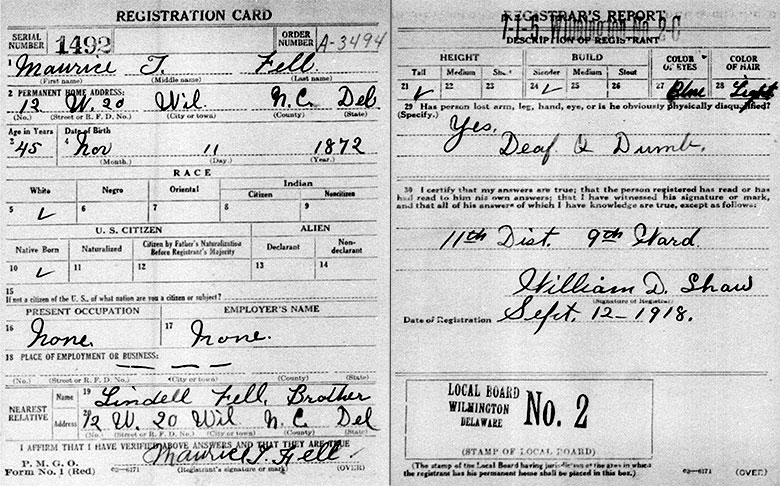 REGISTRATION CARD
SERIAL NUMBER 1492 ORDER NUMBER A-3494
1 Maurice T. Fell
(First name) (Middle name) (Last name)
2 PERMANENT HOME ADDRESS:
12 W. 20 Wil. N.C. Del
(No.) (Street or R. F. D. No.) (City or town) (County) (State)
Age in Years Date of Birth
3 45 4 Nov 11 1872
(Month.) (Day.) (Year.)
RACE
White Negro Oriental Indian
Citizen Noncitizen
5 ✓ 6 7 8 9
U. S. CITIZEN ALIEN
Native Born Naturalized Citizen by Father's Naturalization Before Registrant's Majority Declarant Non-declarant
10 ✓ 11 12 13 14
15
If not a citizen of the U. S., of what nation are you a citizen or subject?
PRESENT OCCUPATION EMPLOYER'S NAME
16 None. 17 None.
18 PLACE OF EMPLOYMENT OR BUSINESS:
— — —
(No.) (Street or R. F. D. No.) (City or town) (County) (State)
NEAREST RELATIVE Name 19 Lindell Fell, Brother
Address 20 12 W. 20 Wil N.C. Del
(No.) (Street or R. F. D. No.) (City or town) (County) (State)
I AFFIRM THAT I HAVE VERIFIED ABOVE ANSWERS AND THAT THEY ARE TRUE
P. M. G. O.
Form No. 1 (Red) 03—6171 Maurice T. Fell
(Registrant's signature or mark) (OVER)
REGISTRAR'S REPORT
7-1-5 Wilmington No. 2-C
DESCRIPTION OF REGISTRANT
HEIGHT BUILD COLOR OF EYES COLOR OF HAIR
Tall Medium Short Slender Medium Stout
21 ✓ 22 23 24 ✓ 25 26 27 Blue 28 Light
29 Has person lost arm, leg, hand, eye, or is he obviously physically disqualified?
(Specify.)
Yes.
Deaf & Dumb.
30 I certify that my answers are true; that the person registered has read or has
had read to him his own answers; that I have witnessed his signature or mark,
and that all of his answers of which I have knowledge are true, except as follows:
11th Dist. 9th Ward.
William D. Shaw
(Signature of Registrar)
Date of Registration Sept. 12-1918.
LOCAL BOARD
WILMINGTON
DELAWARE
No. 2
(STAMP OF LOCAL BOARD)
(The stamp of the Local Board having jurisdiction of the area in which
the registrant has his permanent home shall be placed in this box.)
03—6171 (OVER)